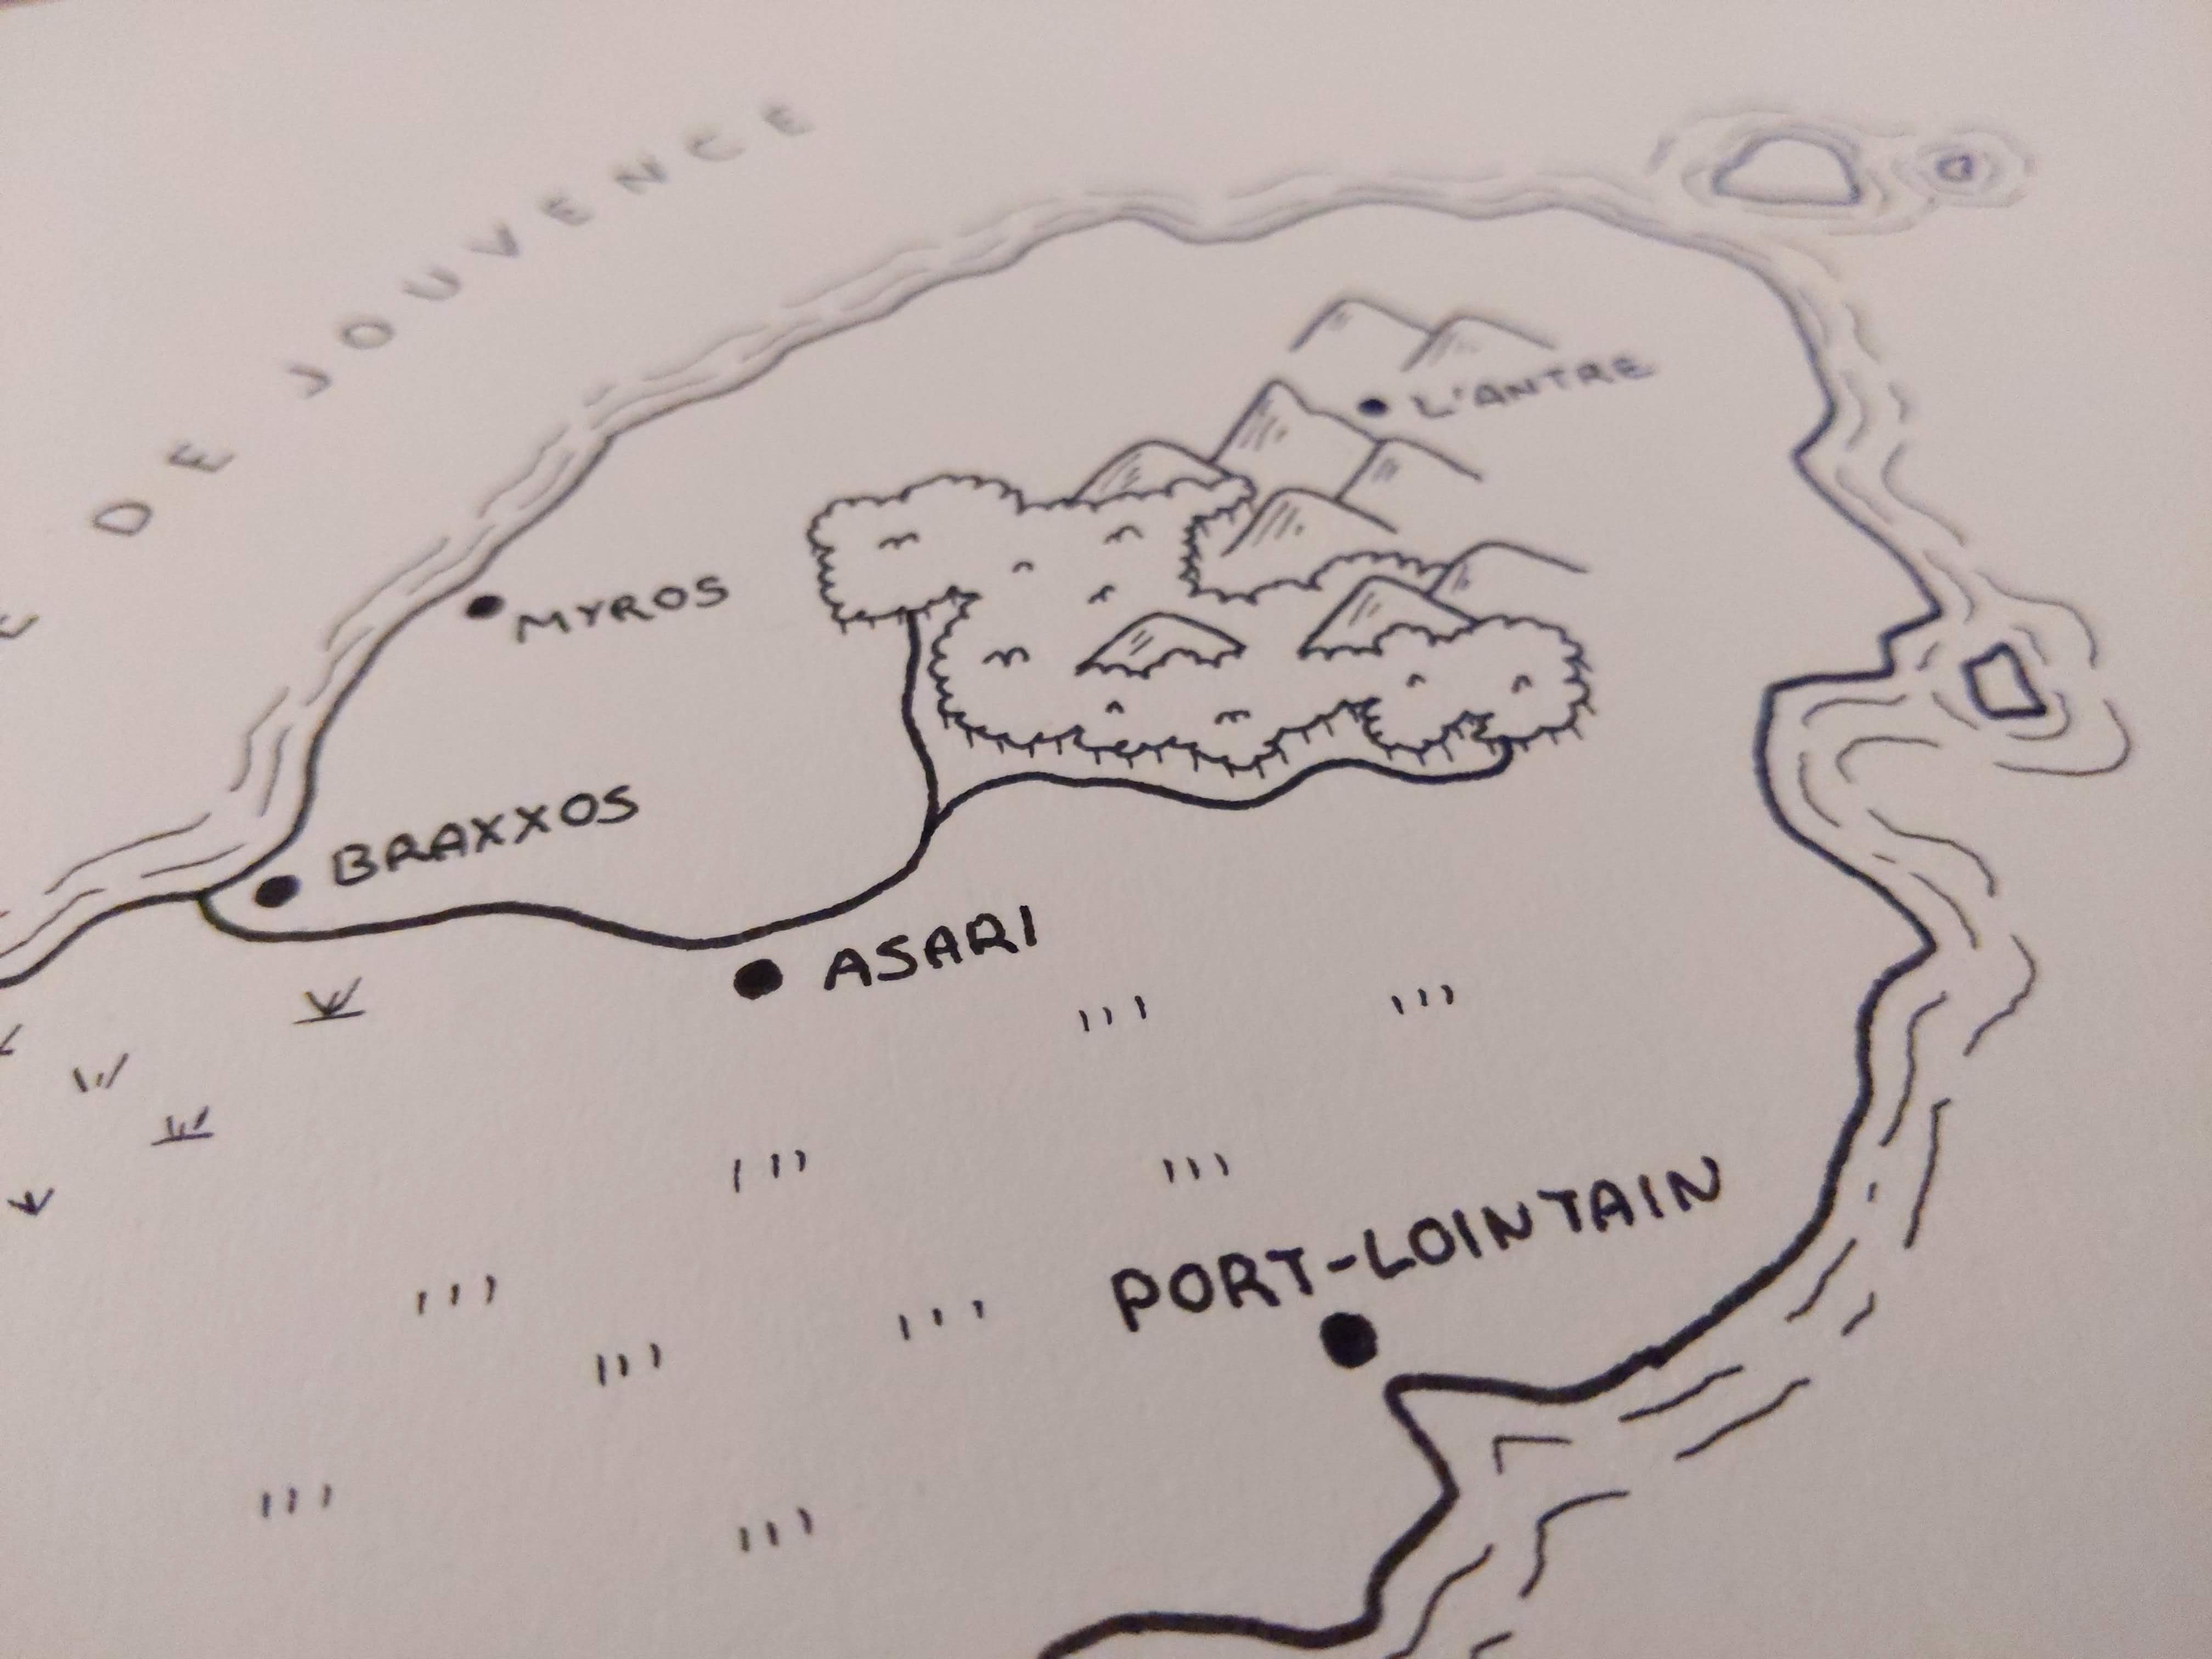 DE JOUVENCE
L'ANTRE
MYROS
BRAXXOS
ASARI
PORT-LOINTAIN